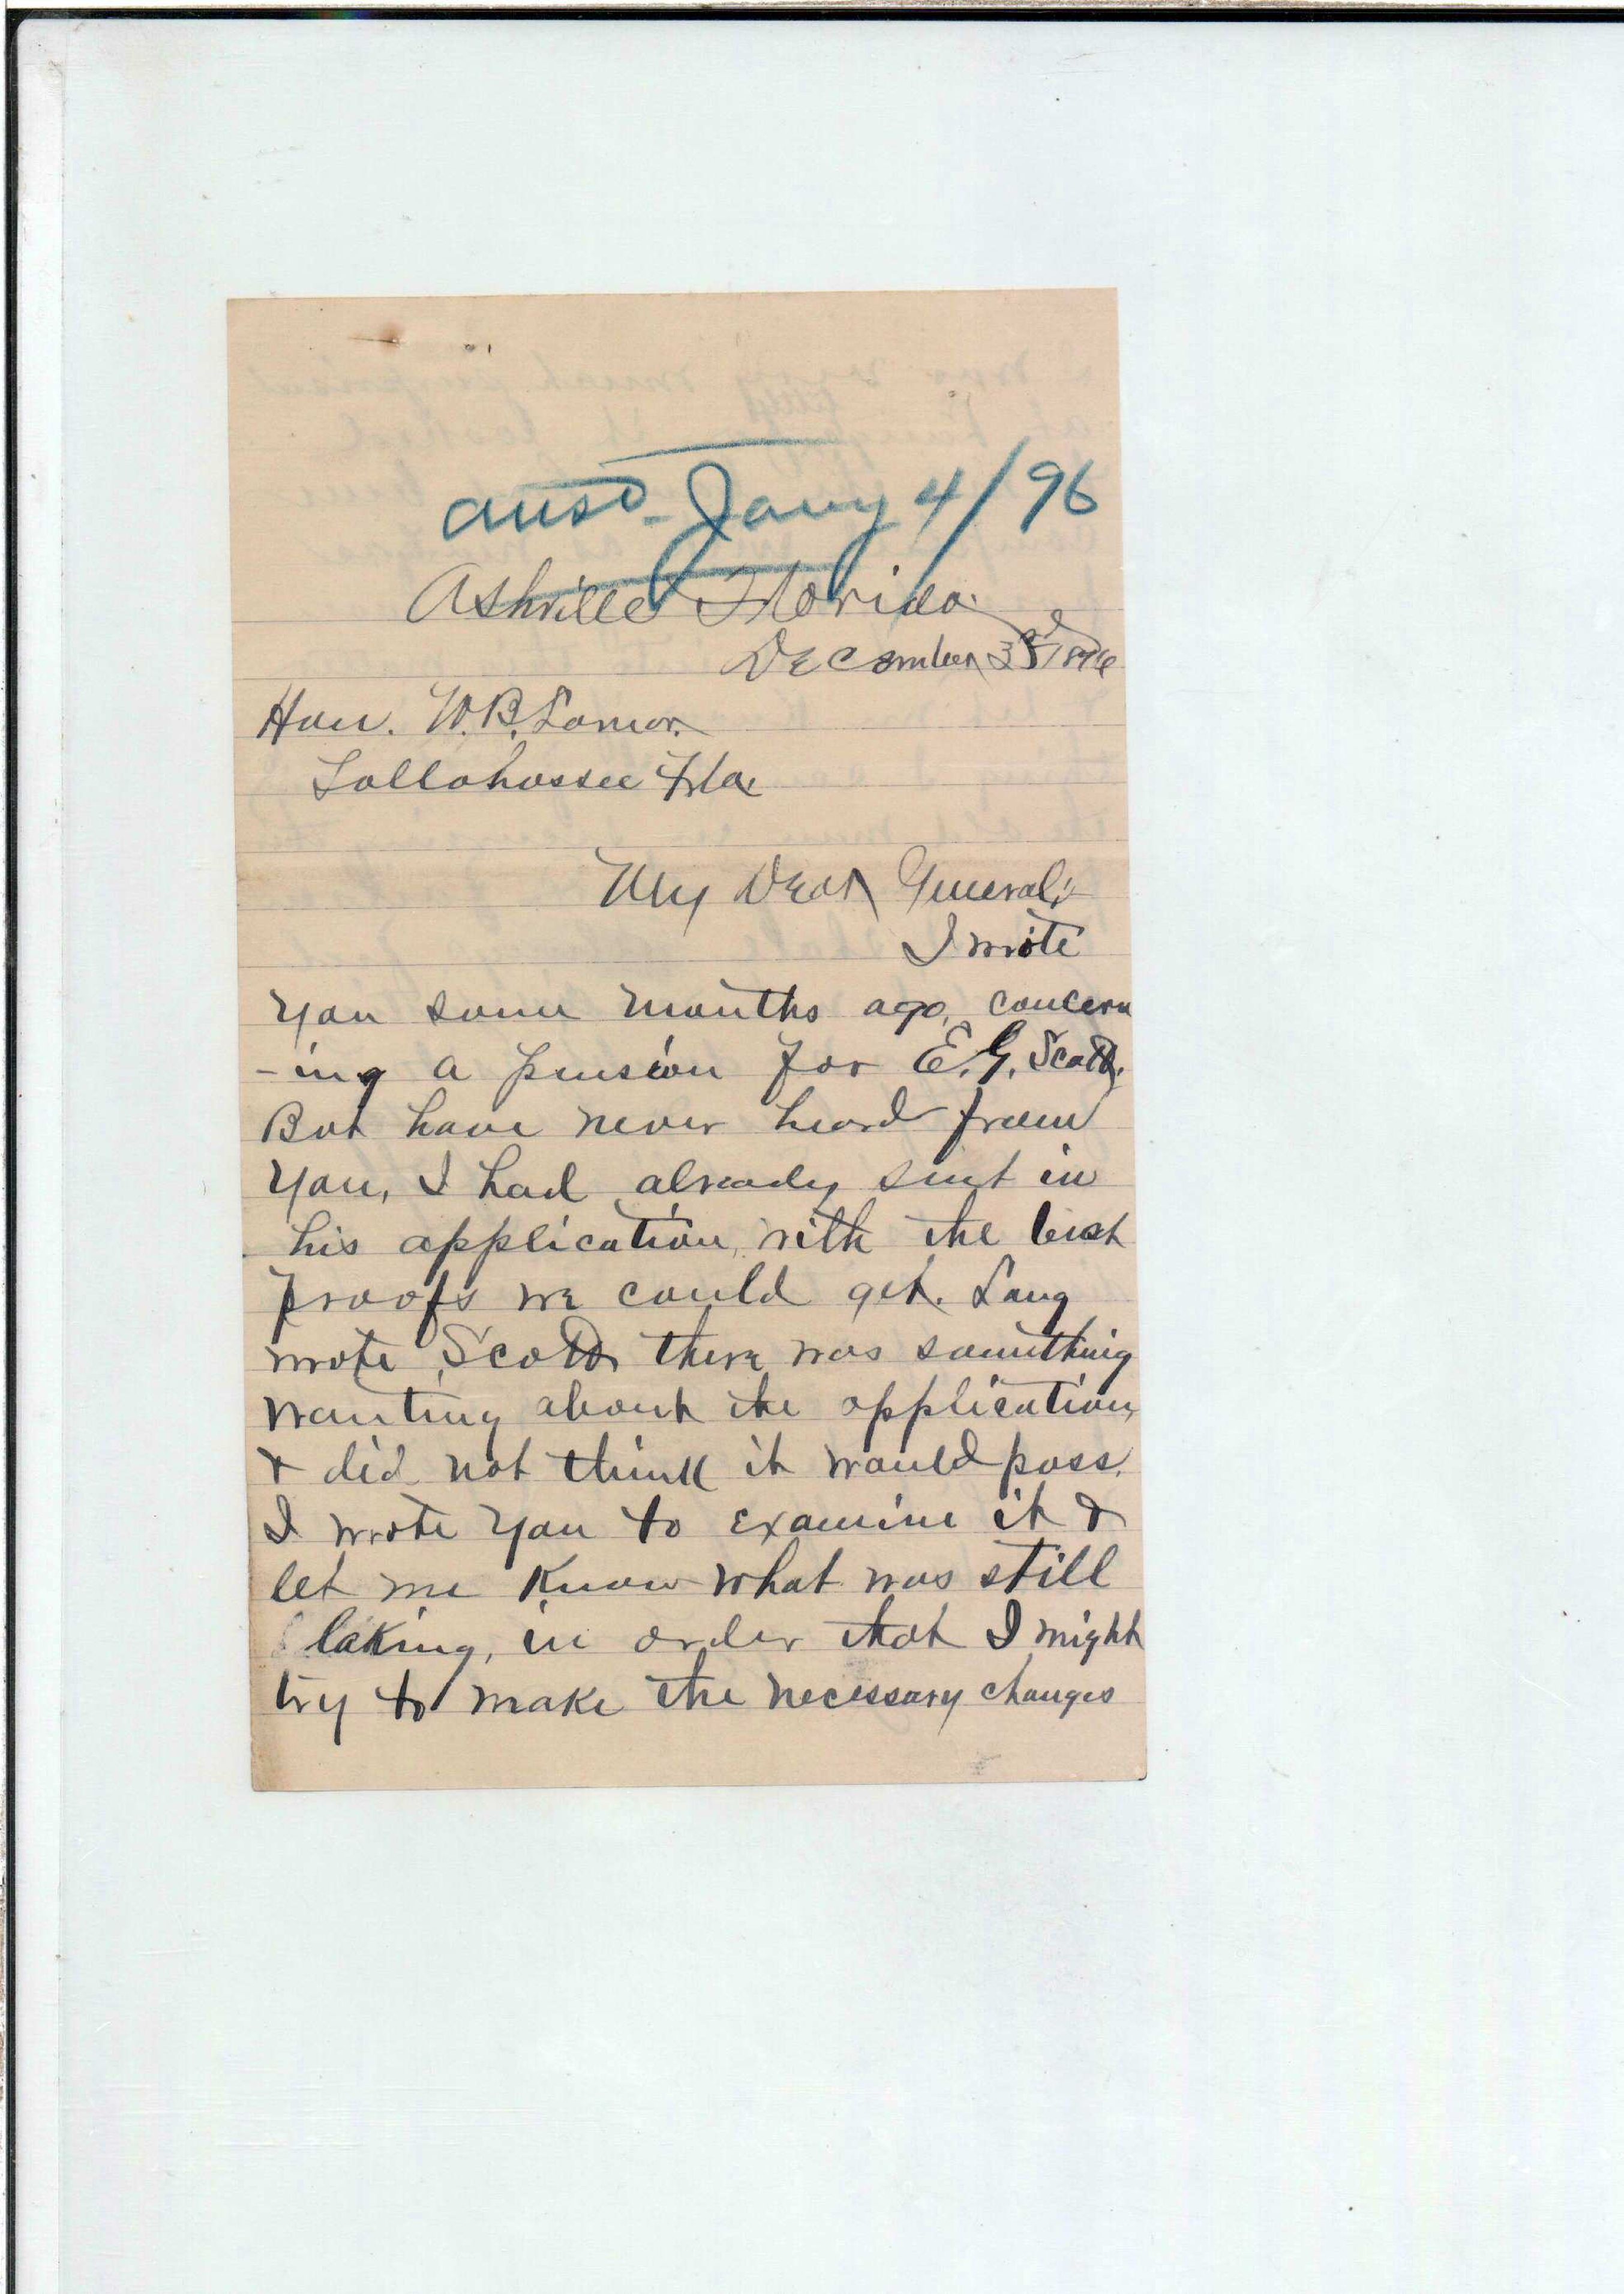 ansd - Jany 4/96
Ashville Florida.
December
Hon. W. B. Lamar.
Tallahassee Fla.
My Dear General;
I wrote
you some months ago, concern
-ing a pension for E. G. Scott.
But have never heard from
you, I had already sent in
his application, with the best
proofs we could get. Lang
wrote Scott there was something
wanting about the application,
& did not think it would pass.
I wrote you to examine it &
let me know what was still
laking, in order that I might
try to make the necessary changes